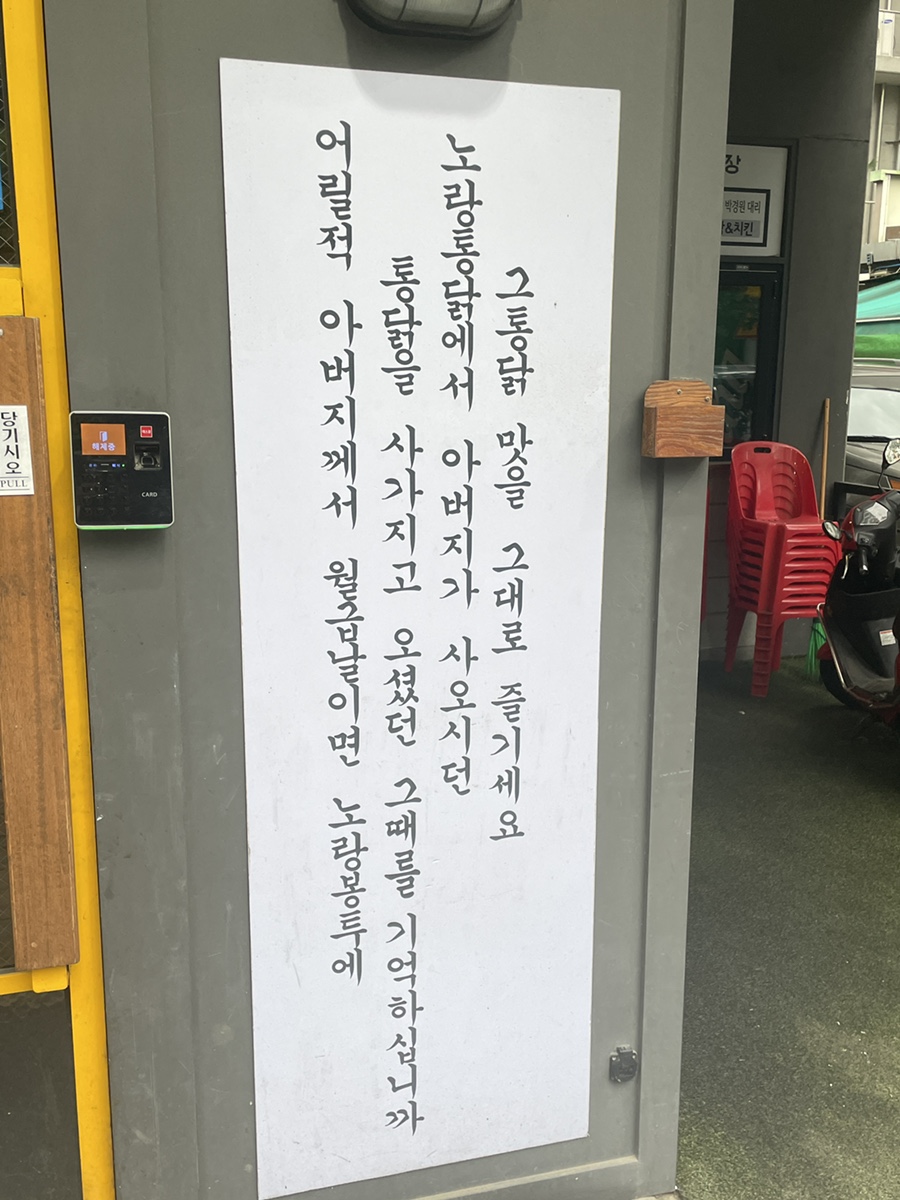 어릴적 아버지께서 월급날이면 노랑봉투에
통닭을 사가지고 오셨던 그때를 기억하십니까
노랑통닭에서 아버지가 사오시던
그통닭 맛을 그대로 즐기세요
당기시오
PULL
해제중
CARD
장
박경원 대리
&치킨